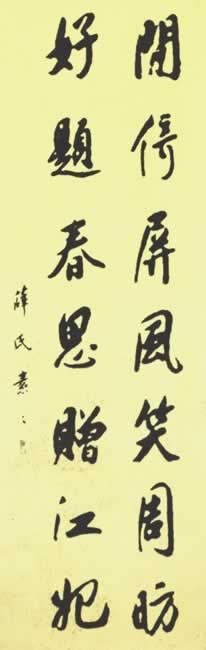 閒倚屏風笑周昉
好題春思贈江妃
薛氏素〻